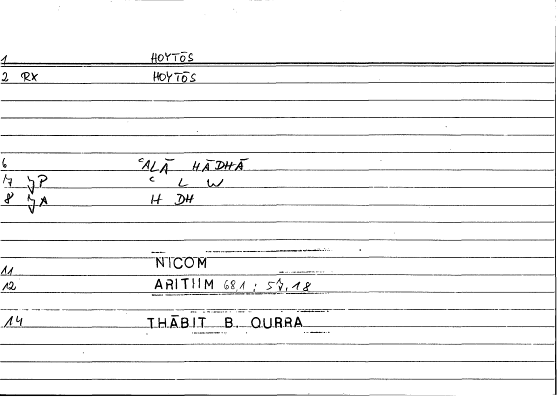 1 HOYTŌS
2 RX HOYTŌS
6 ʿALĀ HĀDHĀ
7 P ʿ L W
8 A H DH
11 NICOM
12 ARITIIM 681 ; 54,18
14 THĀBIT B. QURRA